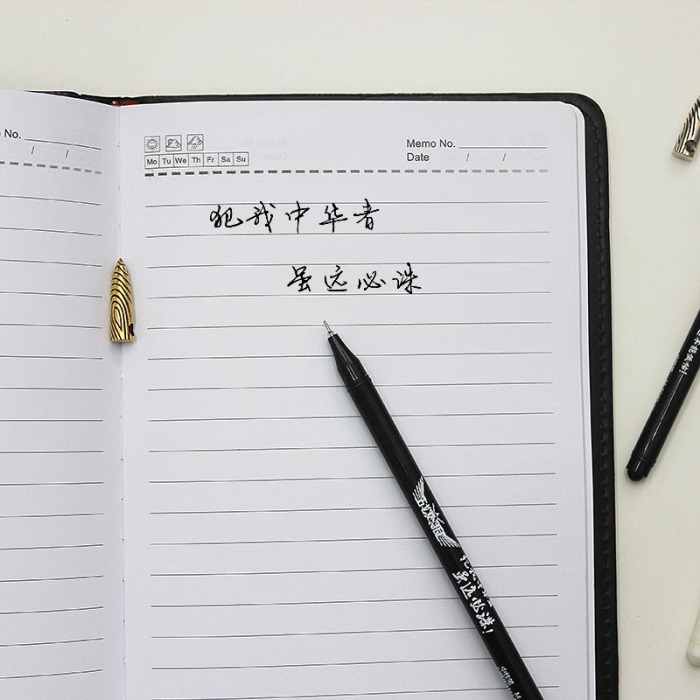 No.
/ /
Memo No.
Mo Tu We Th Fr Sa Su
Date / /
犯我中华者
虽远必诛
犯我中华者
虽远必诛!